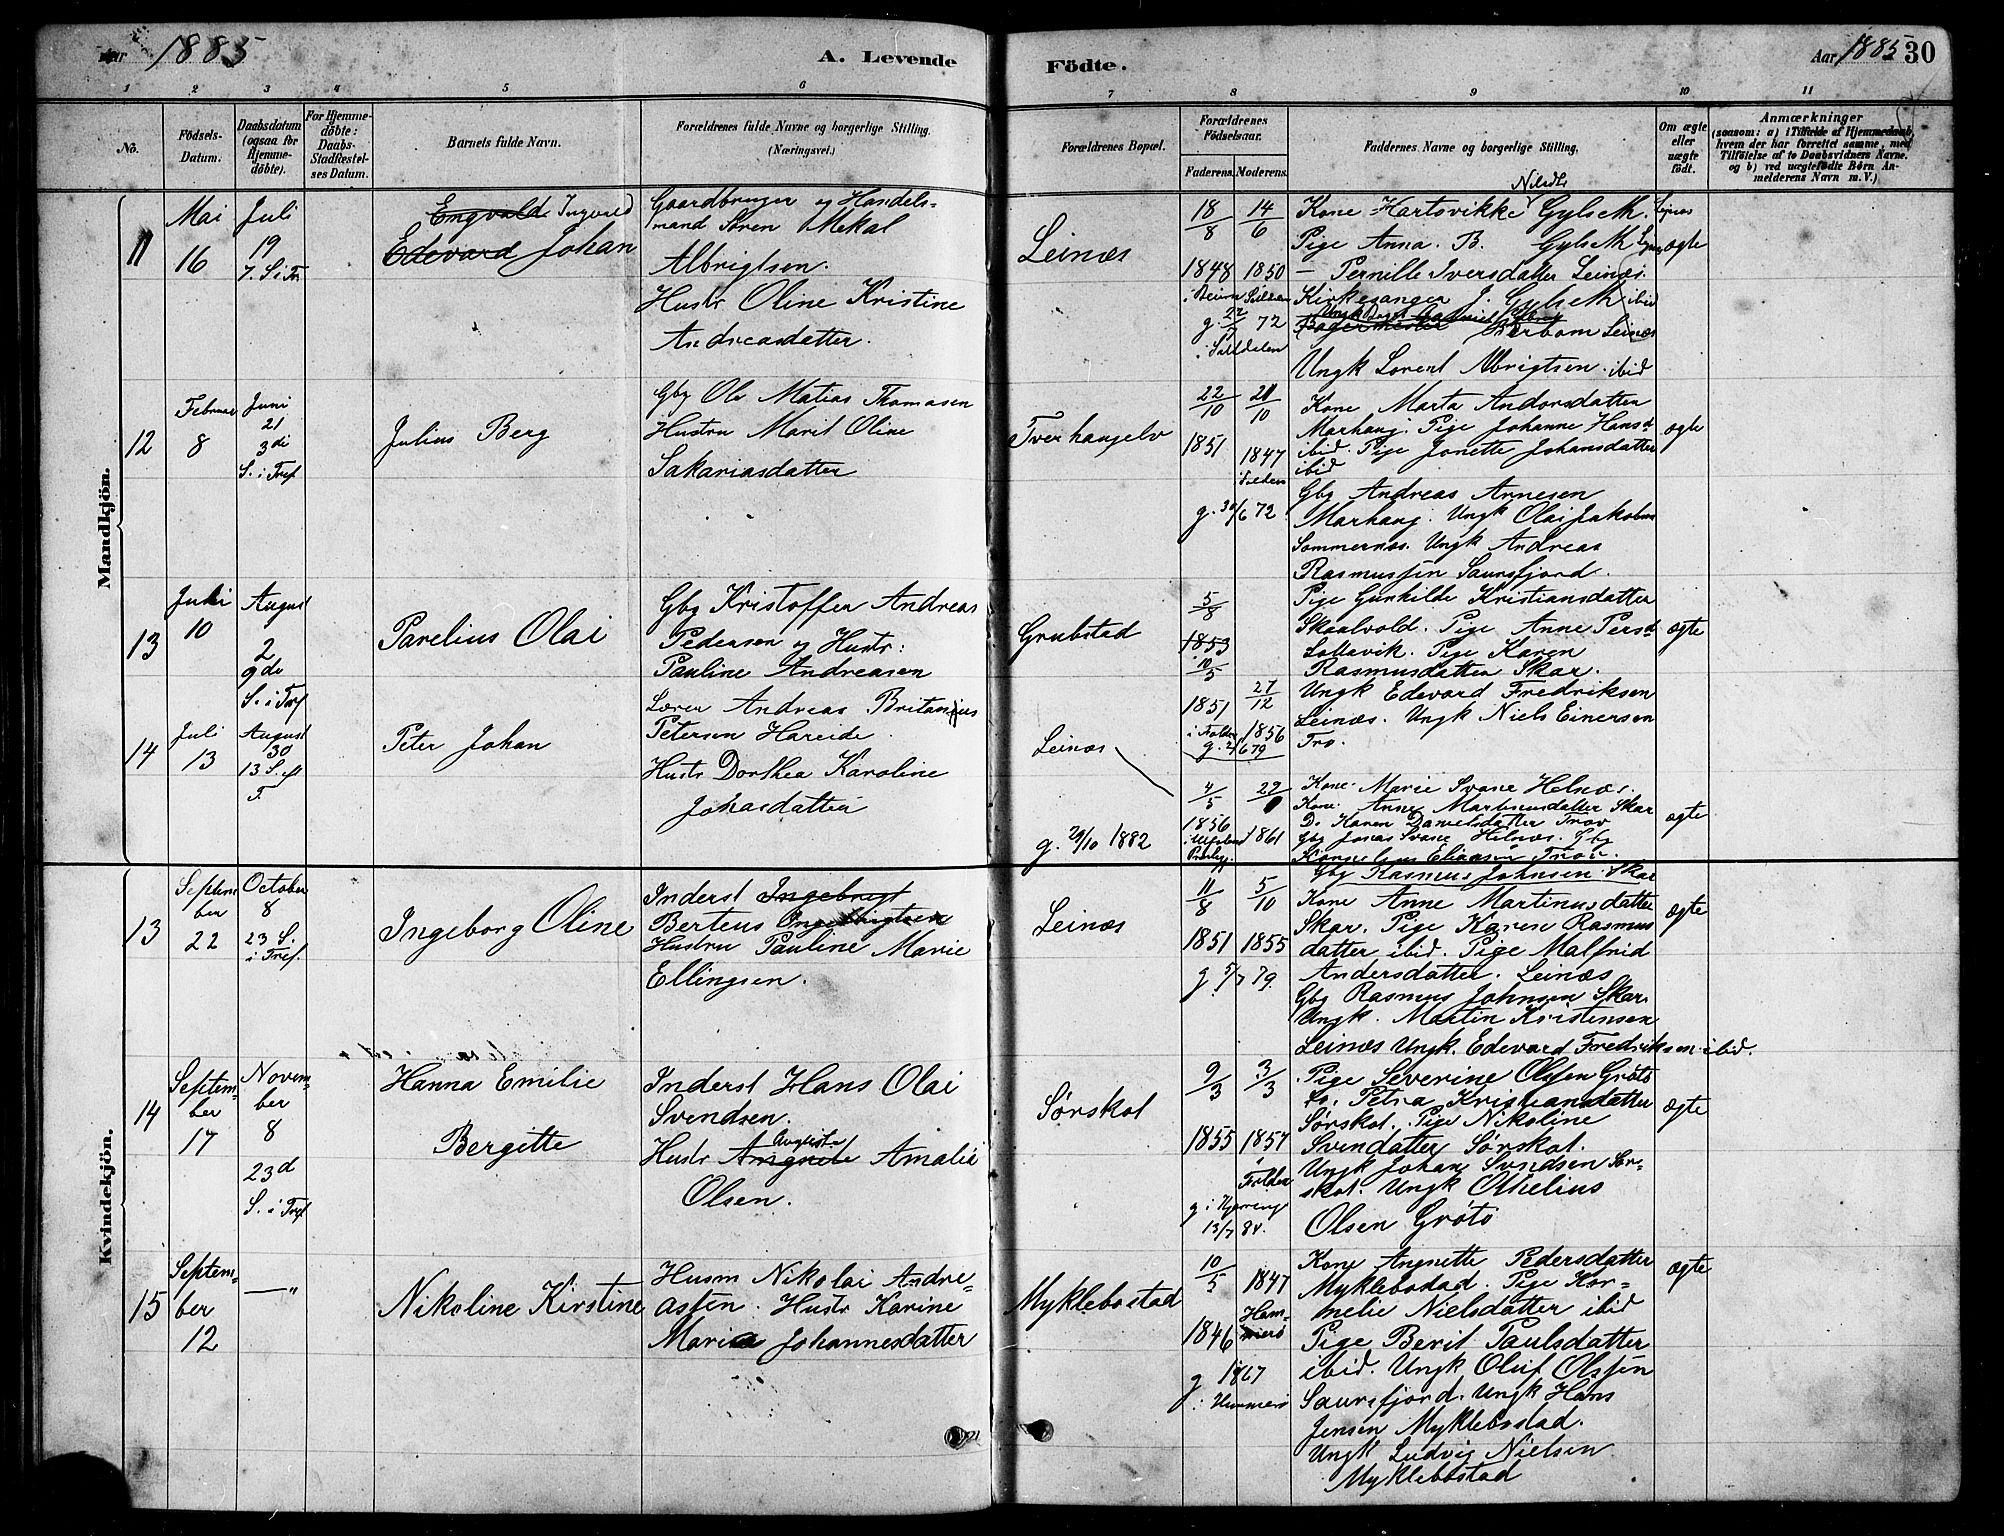 Aar 1885
A. Levende
Födte.
Aar 1885 30
1 2 3 4 5 6 7 8 9 10 11
No.
Födsels-
Datum.
Daabsdatum
(ogsaa for
Hjemme-
döbte).
For Hjemme-
döbte:
Daabs-
Stadfæstel-
ses Datum.
Barnets fulde Navn.
Forældrenes fulde Navne og borgerlige Stilling.
(Næringsvei.)
Forældrenes Bopæl.
Forældrenes
Födselsaar.
Faderens. Moderens.
Faddernes Navne og borgerlige Stilling.
Om ægte
eller
uægte
födt.
Anmærkninger
(saasom: a) i Tilfælde af Hjemmedaab,
hvem der har forrettet samme, med
Tilföielse af to Daabsvidners Navne,
og b) ved uægtefödte Börn An-
melderens Navn m. V.)
Mandkjön.
11
Mai
16
Juli
19
7. S. i Tr.
Engvald Ingvald
Edevard Johan
Gaardbruger og Handels-
mand Søren Mekal
Albrigtsen.
Hustr Oline Kristine
Andreasdatter.
Leinæs
18/8 14/6
1848 1850
g. 22/7 72
Kone Hartsvikke Gylseth. Leinæs
Pige Anna. B. Gylseth
— Pernille Iversdatter Leinæs.
Kirkesanger J. Gylseth ibid
Leinæs
Ungk Lorent Albrigtsen. ibid
ægte
12
Februar
8
Juni
21
3di
S. i Tref
Julius Berg
Gbg Ole Matias Thomasen
Hustru Marit Oline
Sakariasdatter
Tverhangelv
22/10 21/10
1851 1847
g. 30/6 72
Kone Marta Andorsdatter
Marhaug. Pige Johanne Hansd
ibid. Pige Jonette Johansdatter
ibid
Gbg Andreas Arnesen
Marhaug. Ungk Olai Jakobsen
Sommernæs. Ungk Andreas
Rasmussen Saursfjord.
ægte
13
Juli
10
August
2
9de
S. i Tref
Parelius Olai
Gbg Kristoffer Andreas
Pedersen og Hustr:
Pauline Andreasen
Grubstad
5/8
1853
10/5
1851 27/12
1856
Pige Gunhilde Kristiansdatter
Skaalvold. Pige Anne Persd
Sollavik. Pige Karen
Rasmusdatter Skar.
Ungk Edevard Fredriksen
Leinæs. Ungk Niels Einersen
Tro.
ægte
14
Juli
13
August
30
13 S. ef
T.
Peter Johan
Lærer Andreas Britanius
Petersen Hareide.
Hustr Dorthea Karoline
Johasdatter
Leinæs
g. 29/10 1882
4/5
1856 1861
Kone Marie Svane Helnæs.
Kone Anne Martinusdatter Skar
Do Karen Danielsdatter Trov
Gbg Jonas Svane Helnæs. Gbg
Kornelius Eliasen Trov.
Gbg Rasmus Johnsen Skar
ægte
Kvindekjön.
13
Septem
ber
22
October
8
23 S.
i Tref.
Ingeborg Oline
Inderst Ingebregt
Berteus Ingebrigtsen
Hustru Pauline Marie
Ellingsen.
Leinæs
11/8 5/10
1851 1855
g 5/7 79
Kone Anne Martinusdatter
Skar. Pige Karen Rasmus
datter ibid. Pige Malfrid
Andersdatter. Leinæs
Gbg Rasmus Johnsen Skar.
Ungk. Martin Kristensen
Leinæs Ungk. Edevard Fredriksen ibid.
ægte
14
Septem-
ber
17
Novem-
ber
8
23d
S. i Tref
Hanna Emilie
Bergitte
Inderst Hans Olai
Svendsen.
Hustr Augusta Amalia
Olsen.
Sørskot
9/3 3/3
1855 1857
i Folden
g. i Kjerringø
13/7 84.
Pige Severine Olsen Grøtø
Do. Petra Kristiansdatter
Sørskot. Pige Nikoline
Svendatter Sørskot.
Ungk Johan Svendsen Sør-
skot. Ungk Othelius
Olsen Grøtø
ægte
15
Septem-
ber
12
— "
Nikoline Kirstine
Husm Nikolai Andre-
asen. Hustr Karine
Maria Johannesdatter
Myklebostad
10/5 1847
Ham-
merø
1846
g 1867
i Hammerø
Kone Angnette Pedersdatter
Myklebostad. Pige Kor-
nelie Nielsdatter ibid
Pige Berit Paulsdatter
ibid. Ungk Oluf Olsen
Saursfjord. Ungk Hans
Jensen Myklebostad.
Ungk Ludvig Nielsen
Myklebostad
ægte